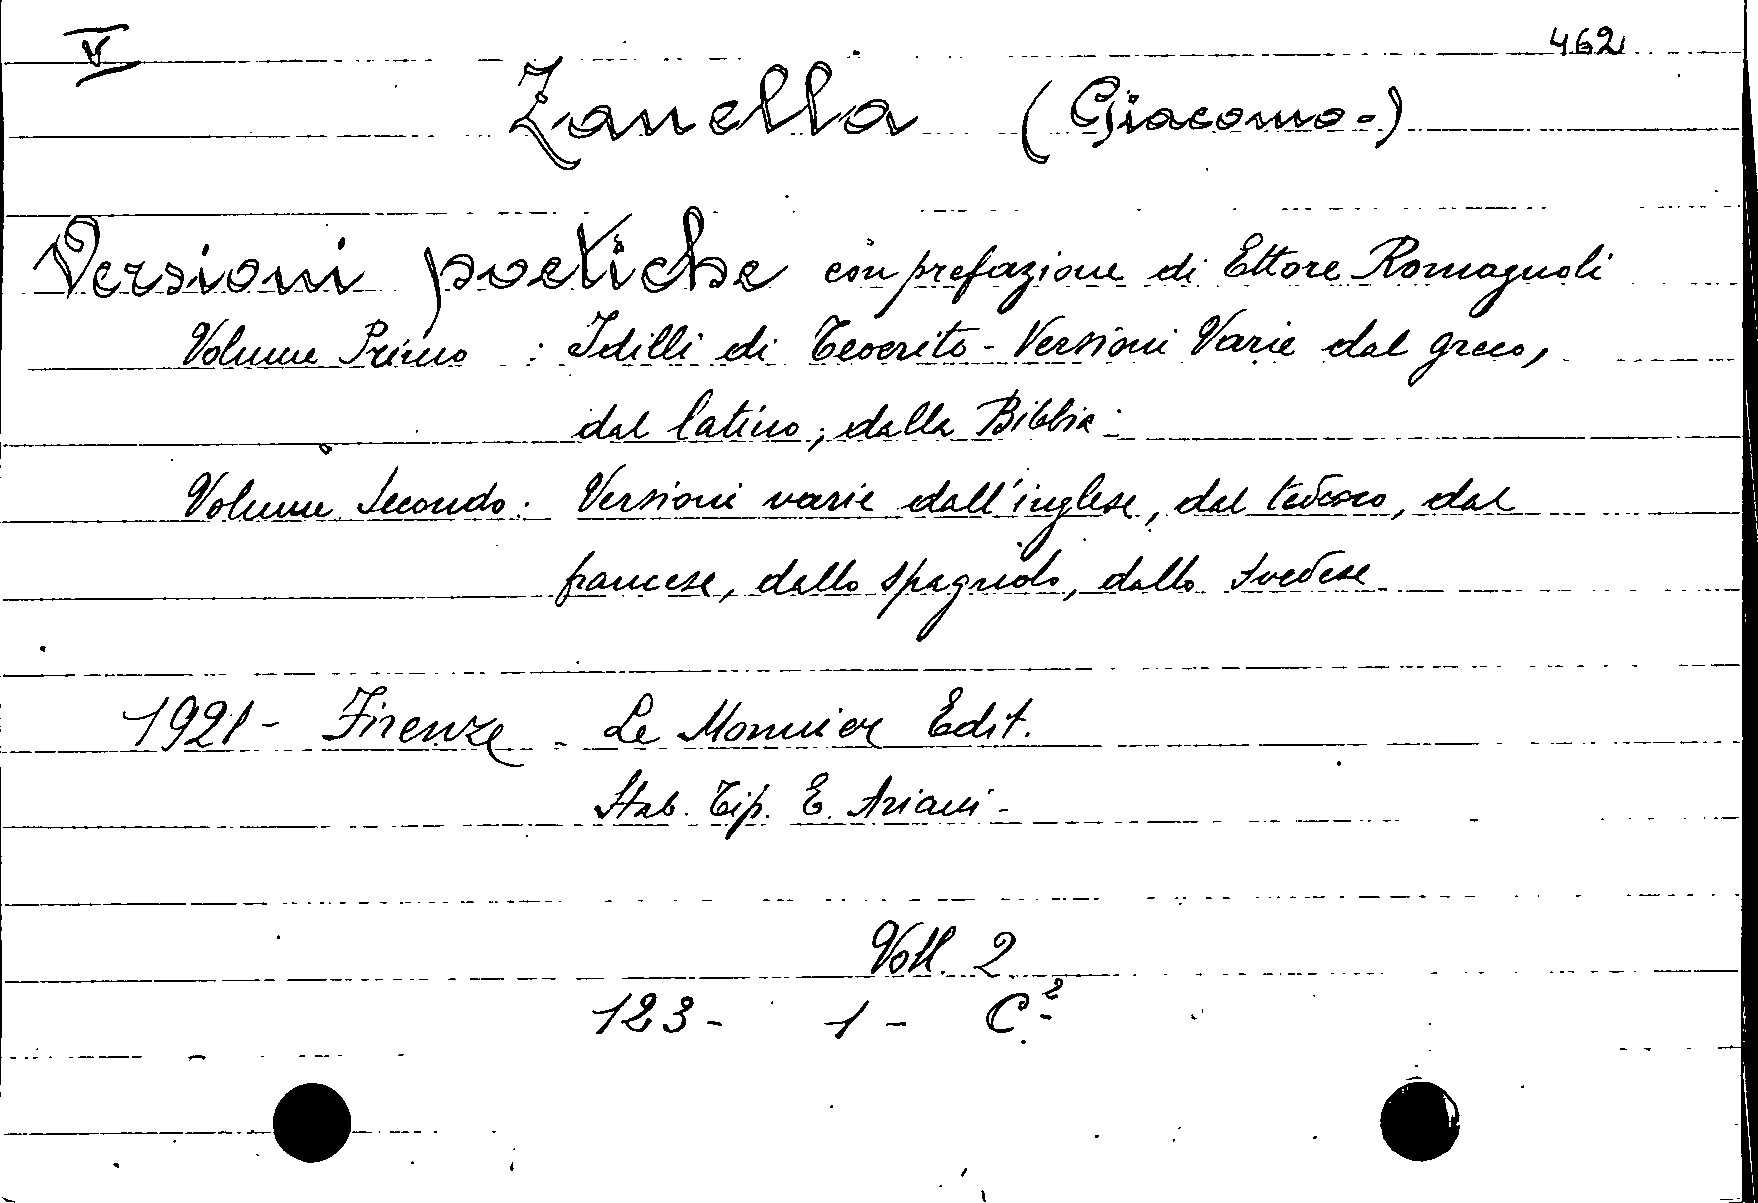 V 462
Zanella (Giacomo-)
Versioni poetiche con prefazione di Ettore Romagnoli
Volume Primo : Idilli di Teocrito - Versioni Varie dal greco,
dal latino, dalla Bibbia -
Volume Secondo : Versioni varie dall'inglese, dal tedesco, dal
francese, dallo spagnolo, dallo svedese
1921 - Firenze - Le Monnier Edit.
Stab. Tip. E. Ariani -
Voll. 2
123 - 1 - C²